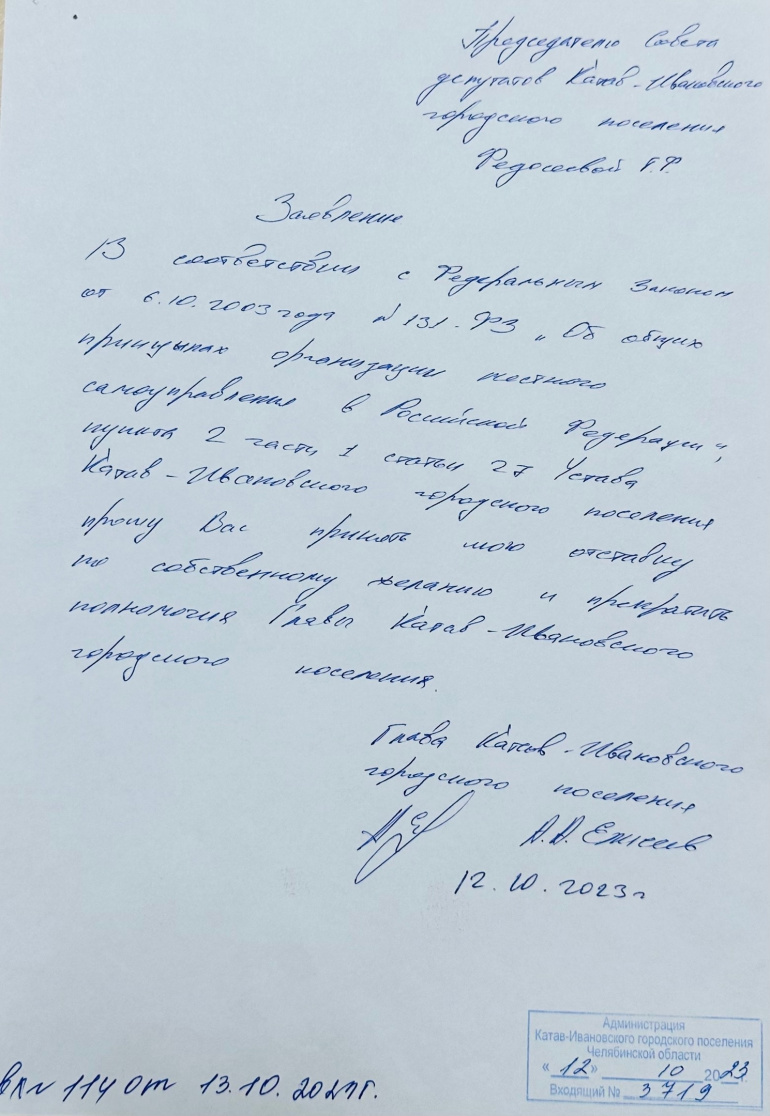 Председателю Совета
депутатов Катав-Ивановского
городского поселения
Федосеевой Г.Ф.
Заявление
В соответствии с Федеральным Законом
от 6.10.2003 года №131-ФЗ „Об общих
принцыпах организации местного
самоуправления в Росийской Федерации",
пункта 2 части 1 статьи 27 Устава
Катав-Ивановского городского поселения
прошу Вас принять мою отставку
по собственному желанию и прекратить
полномочия Главы Катав-Ивановского
городского поселения.
Глава Катав-Ивановского
городского поселения
А.А.
12.10.2023г
Администрация
Катав-Ивановского городского поселения
Челябинской области
«12» 10 2023 г.
Входящий № 3719
вх№ 114 от 13.10.